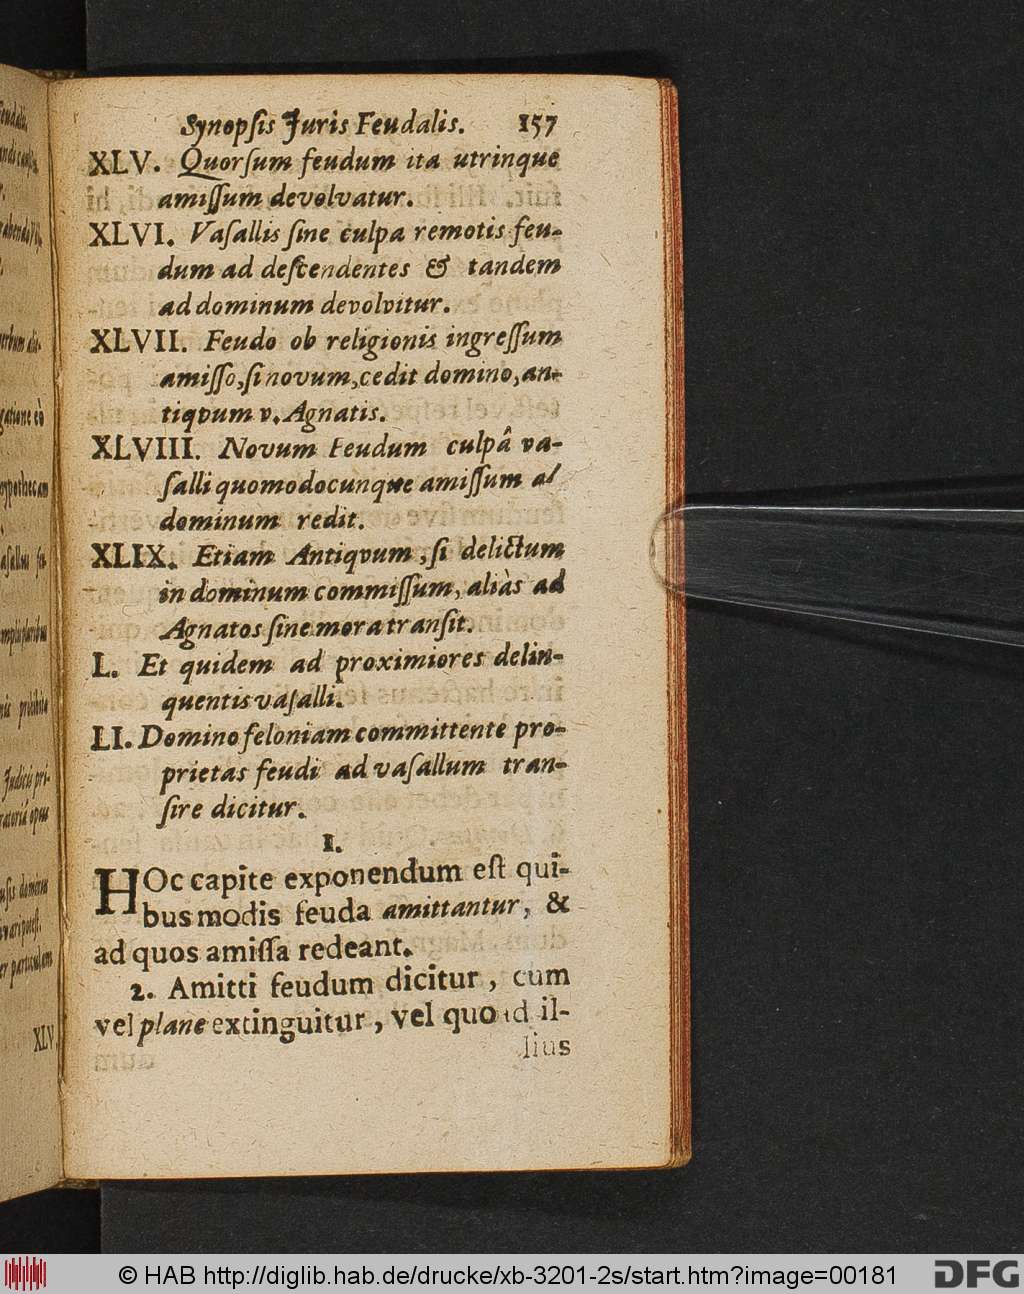 Synopſis Juris Feudalis. 157
XLV. Quorſum feudum ita utrinque
amiſſum devolvatur.
XLVI. Vaſallis ſine culpa remotis feu-
dum ad deſcendentes & tandem
ad dominum devolvitur.
XLVII. Feudo ob religionis ingreſſum
amiſſo, ſi novum, cedit domino, an-
tiqvum v. Agnatis.
XLVIII. Novum Feudum culpâ va-
ſalli quomodocunque amiſſum ad
dominum redit.
XLIX. Etiam Antiqvum, ſi delictum
in dominum commiſſum, aliàs ad
Agnatos ſine mora tranſit.
L. Et quidem ad proximiores delin-
quentis vaſalli.
LI. Domino feloniam committente pro-
prietas feudi ad vaſallum tran-
ſire dicitur.
1.
HOc capite exponendum eſt qui-
bus modis feuda amittantur, &
ad quos amiſſa redeant.
2. Amitti feudum dicitur, cum
vel plane extinguitur, vel quoad il-
lius
XLV.
© HAB http://diglib.hab.de/drucke/xb-3201-2s/start.htm?image=00181
DFG